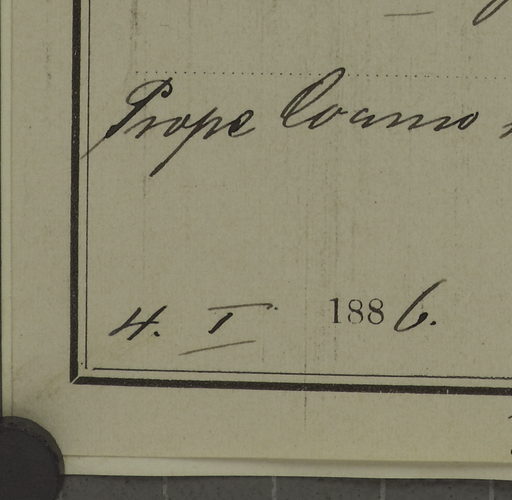 Prope Coamo
4. I 1886.